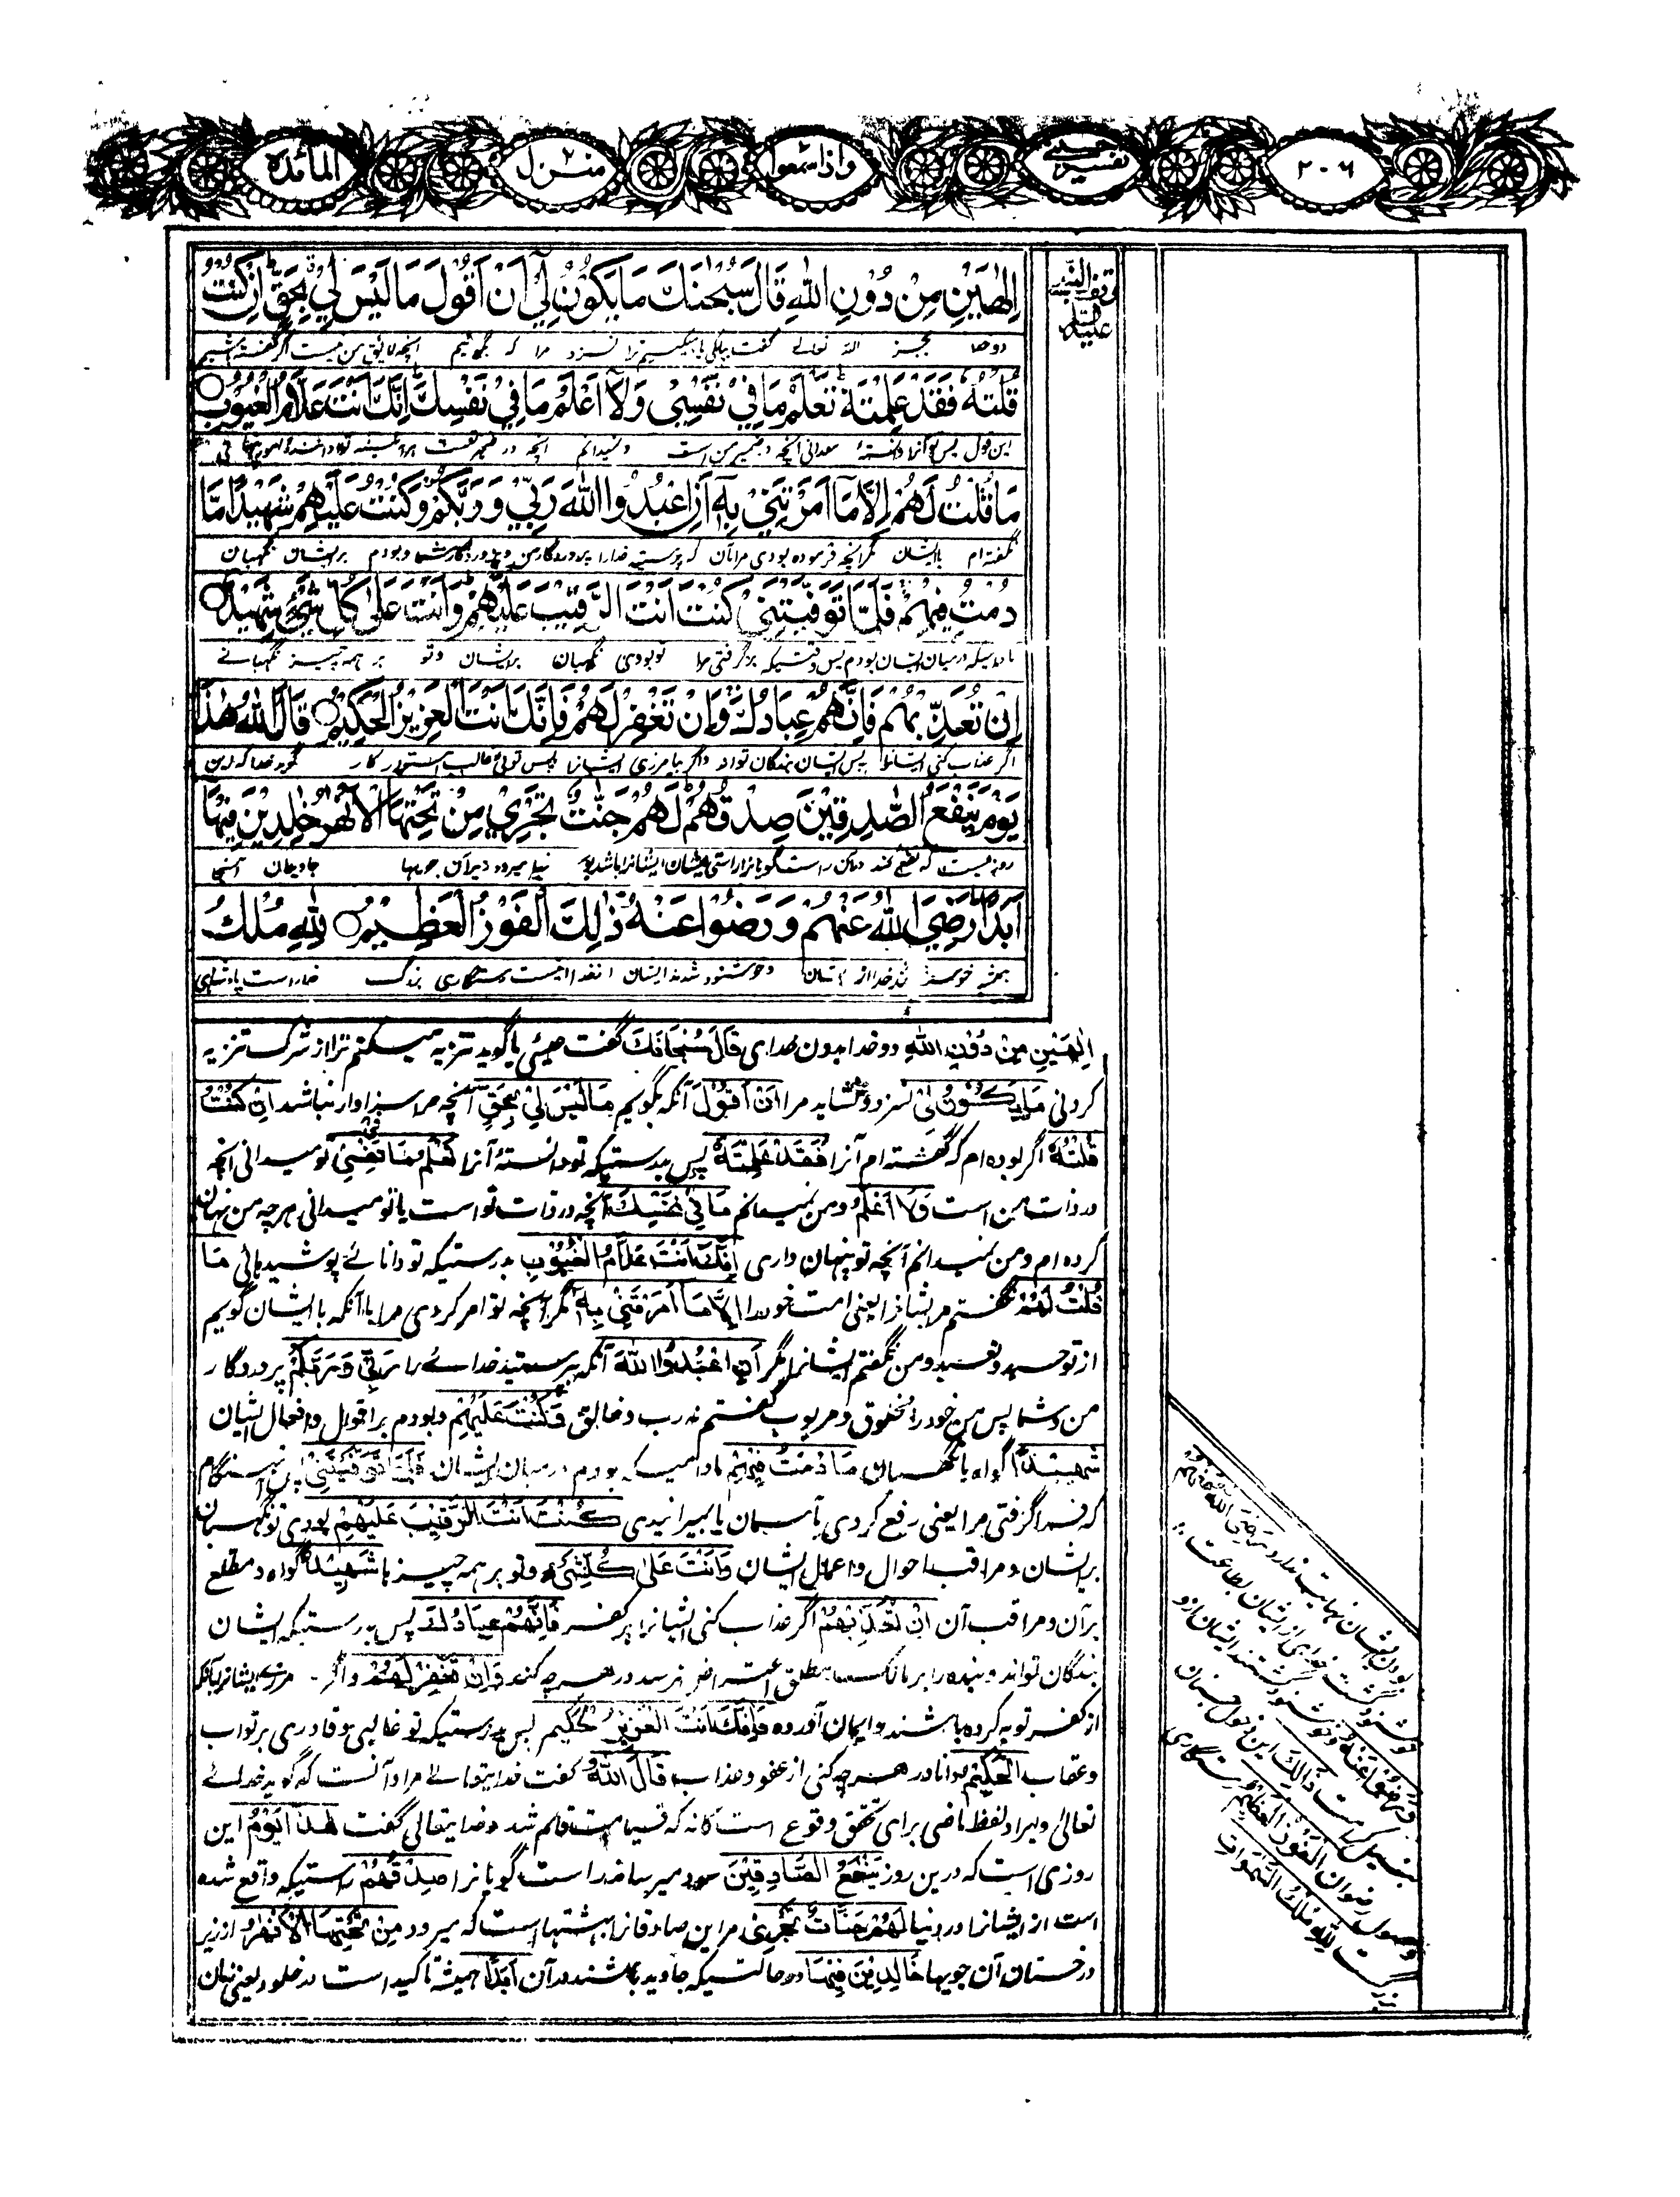 ٢٠٦ تفسیر حسینی واذا سمعوا ٧ منزل ٢ المائدة
اِلٰهَيْنِ مِنْ دُوْنِ اللّٰهِ قَالَ سُبْحٰنَكَ مَا يَكُوْنُ لِيْٓ اَنْ اَقُوْلَ مَا لَيْسَ لِيْ بِحَقٍّ اِنْ كُنْتُ
دو خدا بجز الله تعالی گفت بپاکی یاد میکنیم ترا نسزد مرا که بگویم آنچه لایق من نیست اگر گفته باشم
قُلْتُهٗ فَقَدْ عَلِمْتَهٗ تَعْلَمُ مَا فِيْ نَفْسِيْ وَلَآ اَعْلَمُ مَا فِيْ نَفْسِكَ اِنَّكَ اَنْتَ عَلَّامُ الْغُيُوْبِ
این قول پس تو آنرا دانستهٔ میدانی آنچه در ضمیر من است و نمیدانم آنچه در
مَا قُلْتُ لَهُمْ اِلَّا مَآ اَمَرْتَنِيْ بِهٖٓ اَنِ اعْبُدُوا اللّٰهَ رَبِّيْ وَرَبَّكُمْ وَكُنْتُ عَلَيْهِمْ شَهِيْدًا مَّا
نگفته ام باایشان مگر آنچه فرموده بودی مرا بآن که پرستید خدارا پروردگار من و پروردگار شما و بودم بر ایشان نگهبان
دُمْتُ فِيْهِمْ فَلَمَّا تَوَفَّيْتَنِيْ كُنْتَ اَنْتَ الرَّقِيْبَ عَلَيْهِمْ وَاَنْتَ عَلٰى كُلِّ شَيْءٍ شَهِيْدٌ
مادامیکه در میان ایشان بودم پس وقتیکه برگرفتی مرا تو بودی نگهبان بر ایشان و تو بر همه چیز نگهبانی
اِنْ تُعَذِّبْهُمْ فَاِنَّهُمْ عِبَادُكَ وَاِنْ تَغْفِرْ لَهُمْ فَاِنَّكَ اَنْتَ الْعَزِيْزُ الْحَكِيْمُ قَالَ اللّٰهُ هٰذَا
اگر عذاب کنی ایشانرا پس ایشان بندگان تو اند و اگر بیامرزی ایشانرا پس توئی غالب استوار کار گوید خدا که این
يَوْمُ يَنْفَعُ الصّٰدِقِيْنَ صِدْقُهُمْ لَهُمْ جَنّٰتٌ تَجْرِيْ مِنْ تَحْتِهَا الْاَنْهٰرُ خٰلِدِيْنَ فِيْهَآ
روزیست که نفع کند دران راست گویانرا راستی ایشان ایشانرا باشد جاویدان آنجا
اَبَدًا رَضِيَ اللّٰهُ عَنْهُمْ وَرَضُوْا عَنْهُ ذٰلِكَ الْفَوْزُ الْعَظِيْمُ لِلّٰهِ مُلْكُ
همیشه خدا از ایشان و خوشنود شدند ایشان از خدا اینست رستگاری بزرگ خداراست پادشاهی
اِلٰهَيْنِ مِنْ دُوْنِ اللّٰهِ دو خدا بدون خدای قَالَ سُبْحَانَكَ گفت عیسی یا گوید تنزیه میکنم ترا از شرک تنزیه
کردنی مَا يَكُوْنُ لِيْ نسزد و نشاید مرا اَنْ اَقُوْلَ آنکه بگویم مَا لَيْسَ لِيْ بِحَقٍّ آنچه مرا سزاوار نباشد اِنْ كُنْتُ
قُلْتُهٗ اگر بوده ام که گفته ام آنرا فَقَدْ عَلِمْتَهٗ پس بدرستیکه تو دانستهٔ آنرا تَعْلَمُ مَا فِيْ نَفْسِيْ تو میدانی آنچه
در ذات من است وَلَا اَعْلَمُ و من نمیدانم مَا فِيْ نَفْسِكَ آنچه در ذات تو است یا تو میدانی هر چه من نهان
کرده ام و من نمیدانم آنچه تو پنهان داری اِنَّكَ اَنْتَ عَلَّامُ الْغُيُوْبِ بدرستیکه تو دانائے پوشیدہائی مَا
قُلْتُ لَهُمْ نگفتم مر ایشانرا یعنی امت خود را اِلَّا مَا اَمَرْتَنِيْ بِهٖ مگر آنچه تو امر کردی مرا باآنکه باایشان گویم
از توحید و تعبد و من نگفتم ایشانرا مگر اَنِ اعْبُدُوا اللّٰهَ آنکه پرستید خدائے را رَبِّيْ وَرَبَّكُمْ پروردگار
من و شما پس من خود را مخلوق و مربوب گفتم نه رب و خالق وَكُنْتُ عَلَيْهِمْ و بودم بر اقوال و افعال ایشان
شَهِيْدًا گواه یا نگهبان مَا دُمْتُ فِيْهِمْ مادامیکه بودم در میان ایشان فَلَمَّا تَوَفَّيْتَنِيْ پس آن هنگام
که فرا گرفتی مرا یعنی رفع کردی بآسمان یا بمیرانیدی كُنْتَ اَنْتَ الرَّقِيْبَ عَلَيْهِمْ بودی تو نگهبان
بر ایشان و مراقب احوال و اعمال ایشان وَاَنْتَ عَلٰى كُلِّ شَيْءٍ و تو بر همه چیزہا شَهِيْدٌ گواه و مطلع
بر آن و مراقب آن اِنْ تُعَذِّبْهُمْ اگر عذاب کنی ایشانرا بر کفر فَاِنَّهُمْ عِبَادُكَ پس بدرستیکه ایشان
بندگان تواند و بنده را بر مالک مطلق اعتراض نرسد در هرچه کند وَاِنْ تَغْفِرْ لَهُمْ و اگر بیامرزی ایشانرا بآنکه
از کفر توبه کرده باشند و ایمان آورده فَاِنَّكَ اَنْتَ الْعَزِيْزُ الْحَكِيْمُ پس بدرستیکه تو غالبی و قادری بر ثواب
و عقاب الْحَكِيْمُ دانا در هرچه کنی از عفو و عذاب قَالَ اللّٰهُ گفت خدایتعالے مراد آنست که گوید خدائے
تعالی و ایراد لفظ ماضی برای تحقق وقوع است کانه که قیامت قائم شد و خدایتعالی گفت هٰذَا يَوْمُ این
روزی است که درین روز يَنْفَعُ الصَّادِقِيْنَ سود میرساند راست گویانرا صِدْقُهُمْ راستیکه واقع شده
است از ایشانرا در دنیا لَهُمْ جَنَّاتٌ تَجْرِيْ مر این صادقانرا بهشتها است که میرود مِنْ تَحْتِهَا الْاَنْهٰرُ از زیر
درختان آن جویها خَالِدِيْنَ فِيْهَا در حالتیکه جاوید باشند در آن اَبَدًا همیشه تاکید است در خلود یعنی زمان
بودن ایشان نهایت ندارد رَضِيَ اللّٰهُ عَنْهُمْ
خوشنود گشت خدای از ایشان بطاعت
وَرَضُوْا عَنْهُ و خوشنود گشتند ایشان ازو
بنیل کرامت ذٰلِكَ این دخول جنان
وصول رضوان الْفَوْزُ الْعَظِيْمُ رستگاری
بزرگست لِلّٰهِ مُلْكُ السَّمٰوَاتِ